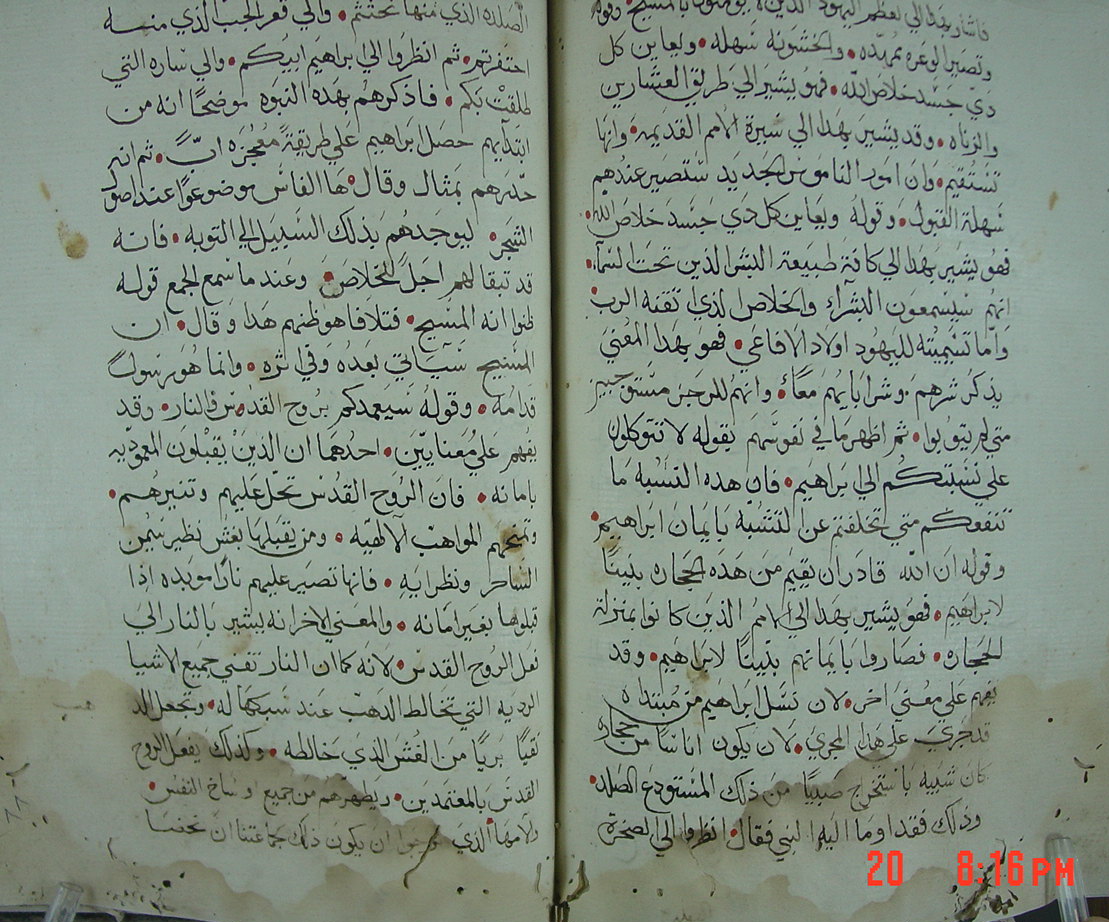 فاشار بهذا الي بعض اليهود الذين يومنون بالمسيح • وقوله
وتصير الوعره ممهده • والخشونه سهله • ويعاين كل
دي جسد خلاص الله • فهو يشير الي طريق العشارين
والزناه • وقد يشير بهذا الي سيرة الامم القديمه • وانها
تستقيم • وان امور الناموس الجديد ستصير عندهم
سهلة القبول • وقوله ويعاين كل دي جسد خلاص الله •
فهو يشير بهذا الي كافة طبيعة البشر الذين تحت السماء •
انهم سيسمعون البشراء والخلاص الذي اتقنه الرب
واما تسميته لليهود اولاد الافاعي • فهو بهذا المعني
يذكر شرهم • وشر ابايهم معًا • وانهم للرجز مستوجبين
متي لم يتوبوا • ثم اظهر ما في نفوسهم بقوله لا تتوكلون
علي نسبتكم الي ابراهيم • فان هذه النسبه ما
تنفعكم متي تخلفتم عن التشبه بايمان ابراهيم •
وقوله ان الله قادر ان يقيم من هذه الحجاره بنينًا
لابراهيم • فهو يشير بهذا الي الامم الذين كانوا بمنزلة
الحجاره • فصاروا بايمانهم بنينًا لابراهيم • وقد
يفهم علي معني اخر • لان نسل ابراهيم من مبتداه
قد جري علي هذا المجري • لان يكون انسانًا من حجاره
كان شبيه باستخراج صبيًا من ذلك المستودع الصلد •
وذلك فقد اوما اليه النبي فقال • انظروا الي الصخرة
الصلده الذي منها نحتتم • والي قعر الجب الذي منه
احتفرتم • ثم انظروا الي ابراهيم ابيكم • والي ساره التي
طلقت بكم • فاذكرهم بهذه النبوه موضحًا انه من
ابتدايهم حصل ابراهيم علي طريقةً معجزه ابًّا • ثم انه
حذرهم بمثال وقال • ها الفاس موضوعًا عند اصول
الشجر • ليوجدهم بذلك السبيل الي التوبه • فانه
قد تبقا لهم اجل للخلاص • وعند ما سمع الجمع قوله
ظنوا انه المسيح • فتلافا هو ظنهم هذا وقال • ان
المسيح سياتي بعده وفي اثره • وانما هو رسول
قدامه • وقوله سيعمدكم بروح القدس والنار • وقد
يفهم علي معنايين • احدهما ان الذين يقبلون المعموديه
بامانه • فان الروح القدس تحل عليهم وتنيرهم •
وتمنحهم المواهب الالهيه • ومن يقبلها بغش نظير سيمن
الساحر ونظرايه • فانها تصير عليهم نارًا موبده اذا
قبلوها بغير امانه • والمعني الاخر انه يشير بالنار الي
فعل الروح القدس • لانه كما ان النار تفني جميع الاشيا
الرديه التي تخالط الذهب عند سبكها له • وتجعل الذهب
نقيًا بريًا من الغش الذي خالطه • وكذلك يفعل الروح
القدس بالمعتمدين • ويطهرهم من جميع اوساخ النفس •
والامها الذي ان يكون ذلك جماعتنا ان
20 8:16 PM